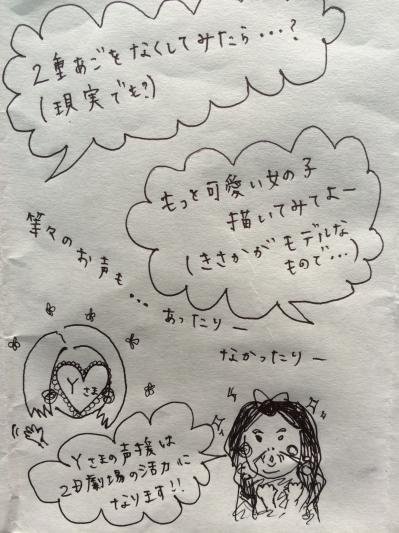 2重あごをなくしてみたら…?
(現実でも?)
もっと可愛い女の子
描いてみてよー
(きさかがモデルな
もので…)
等々のお声も…
あったりー
なかったりー
Yさま
Yさまの声援は
2日劇場の活力に
なります!!